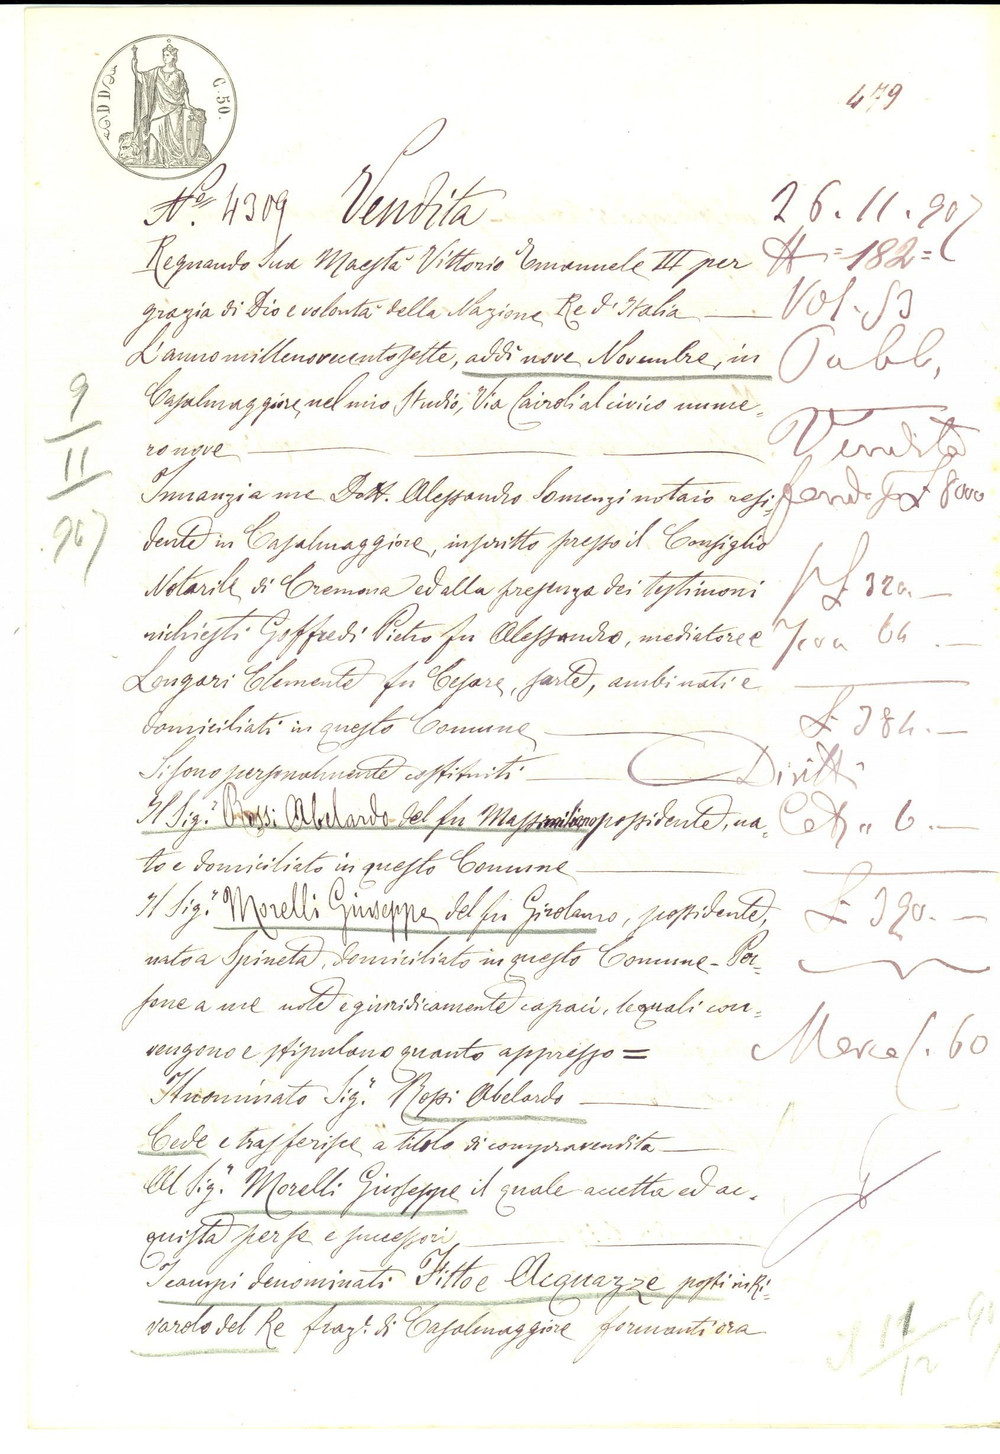 C. 50.
479
N.º 4309 Vendita
Regnando Sua Maestà Vittorio Emanuele III per
grazia di Dio e volontà della Nazione Re d'Italia
L'anno millenovecentosette, addì nove Novembre, in
Casalmaggiore, nel mio Studio, Via Cairoli al civico nume=
ro nove
Innanzi a me Dott. Alessandro Somenzi notaio resi=
dente in Casalmaggiore, inscritto presso il Consiglio
Notarile di Cremona ed alla presenza dei testimoni
richiesti Goffredi Pietro fu Alessandro, mediatore e
Longari Clemente fu Cesare, sarte, ambi nati e
domiciliati in questo Comune
Si sono personalmente costituiti
Il Sig.r Rossi Abelardo del fu Massimiliano possidente, na=
to e domiciliato in questo Comune
Il Sig.r Morelli Giuseppe del fu Girolamo, possidente,
nato a Spineta, domiciliato in questo Comune - Per=
sone a me note e giuridicamente capaci, le quali con=
vengono e stipulano quanto appresso =
Il nominato Sig.r Rossi Abelardo
Cede e trasferisce a titolo di compravendita
Al Sig.r Morelli Giuseppe il quale accetta ed ac=
quista per se e successori
I campi denominati Fitto e Acquazze posti in Ri=
varolo del Re fraz.e di Casalmaggiore formanti ora
26.11.907
N = 182 =
Vol. 53
Pubb.
Vendita
fondo £ 8000
£ 320.—
64.—
£ 384.—
Diritti
6.—
£ 390.—
60
9
11
907
11
12